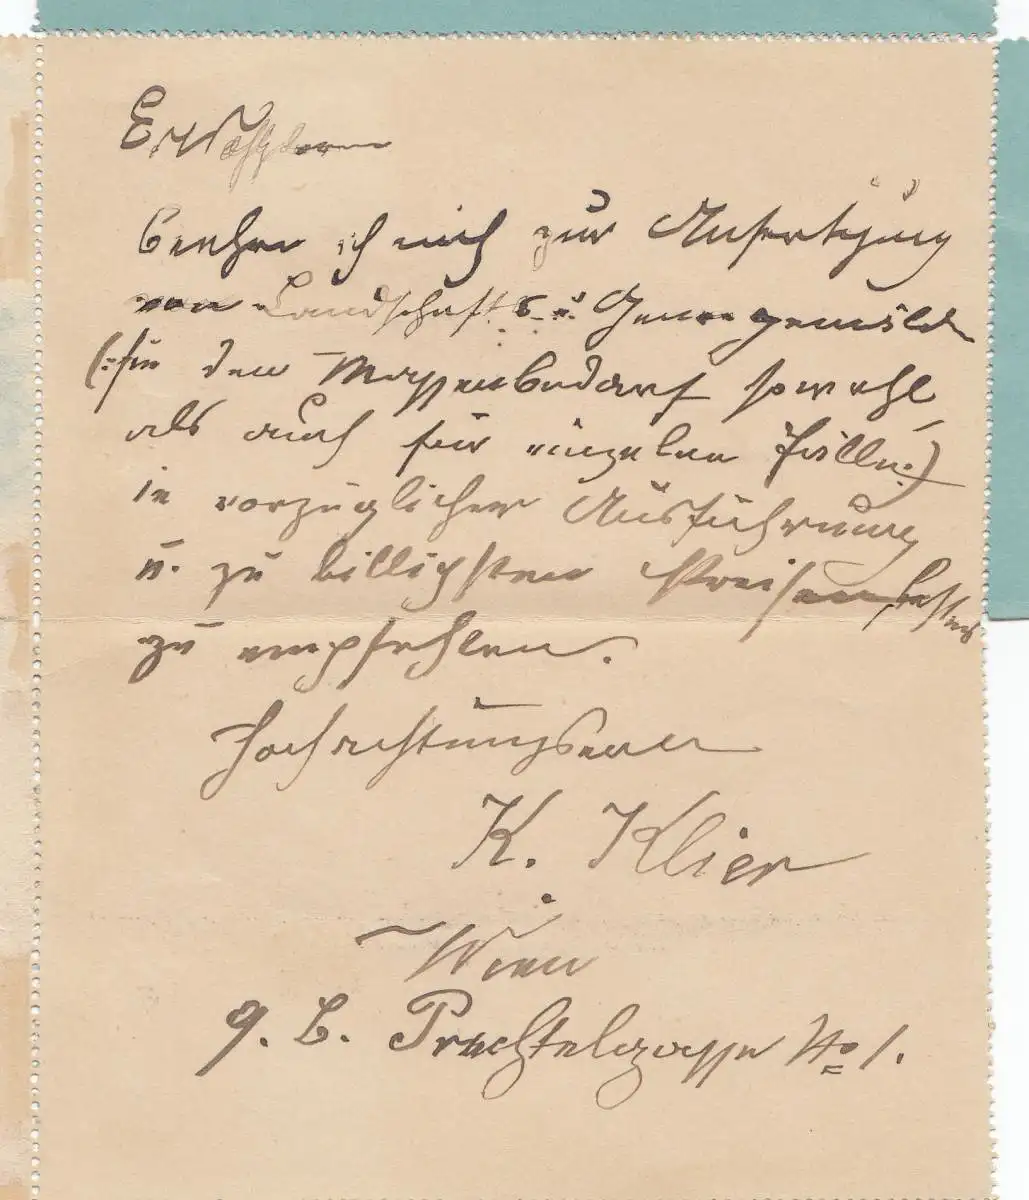 Ew Wohlgeboren
beehre ich mich zur Anfertigung
von Landschafts- u. Genregemälde
(: für den Massenbedarf sowohl
als auch für einzelne Fälle :)
in vorzüglicher Ausführung
u. zu billigsten Preisen bestens
zu empfehlen.
Hochachtungsvoll
K. Klier
Wien
9. B. Prechtelgasse No 1.